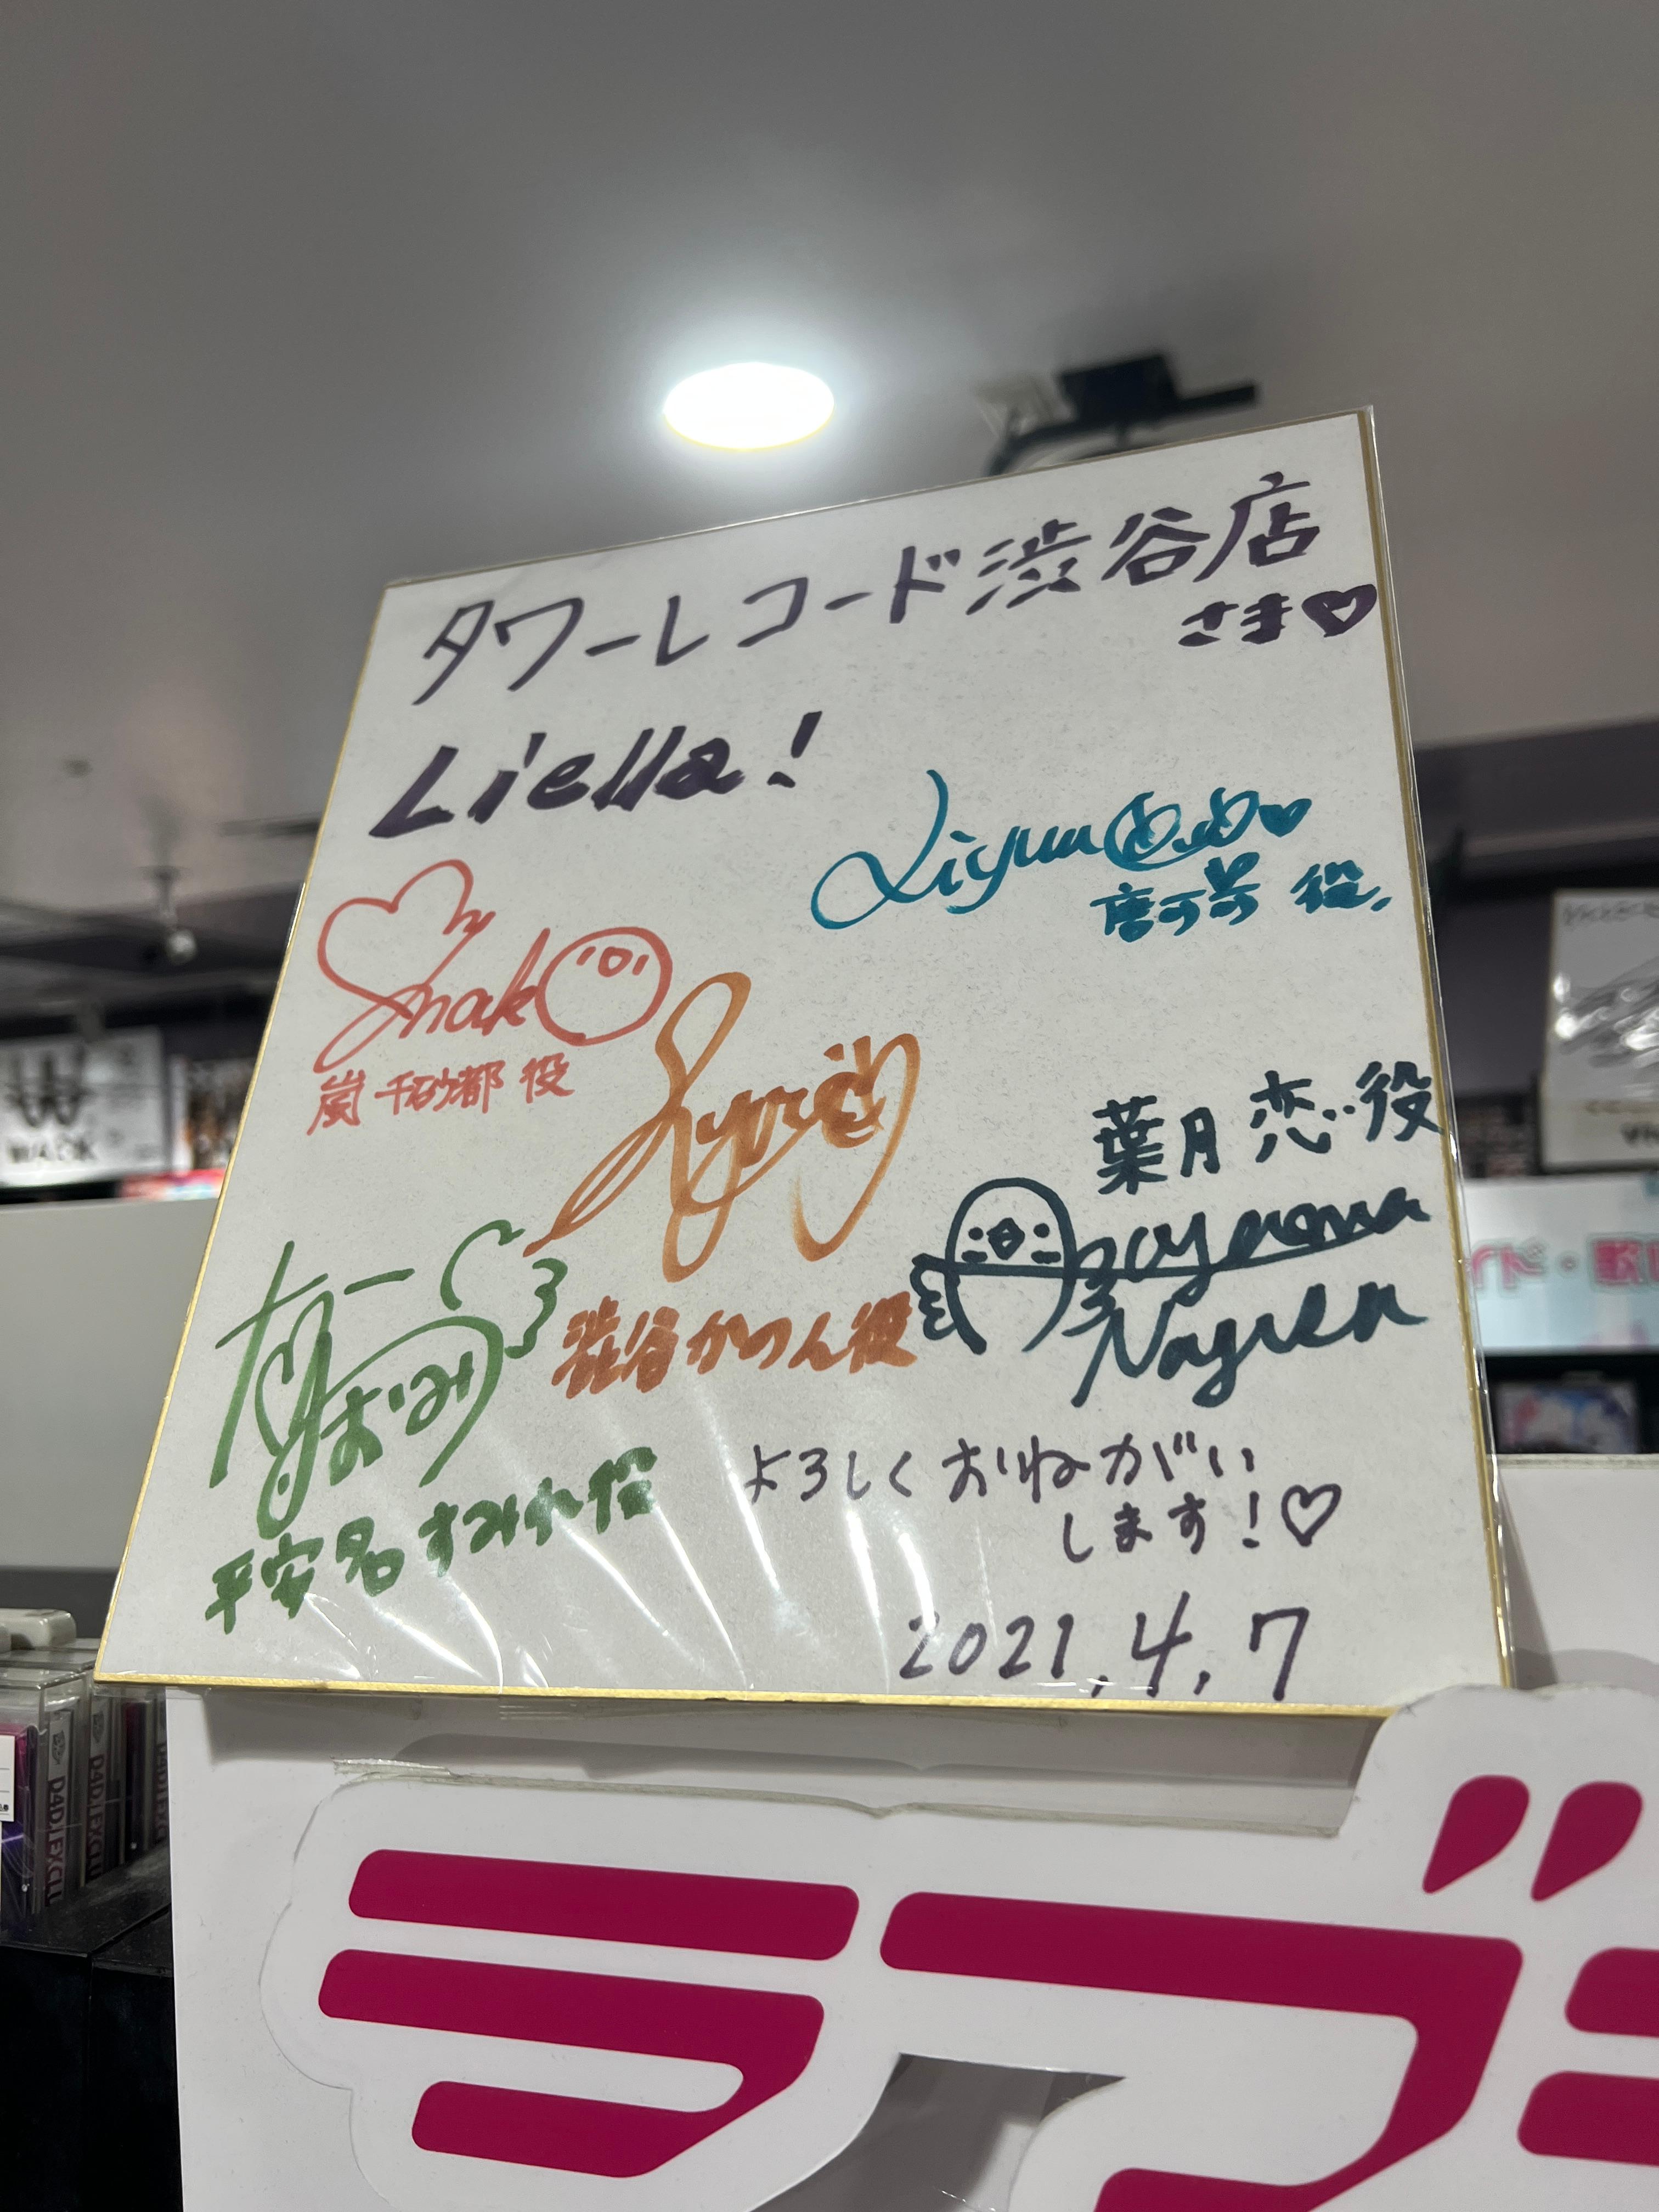 タワーレコード渋谷店
さま♡
Liella!
Liyuu
唐可可 役.
嵐 千砂都 役
葉月 恋 役
Aoyama
Nagisa
渋谷かのん役
平安名すみれ役
よろしくおねがい
します!♡
2021.4.7
ラブ
WARK